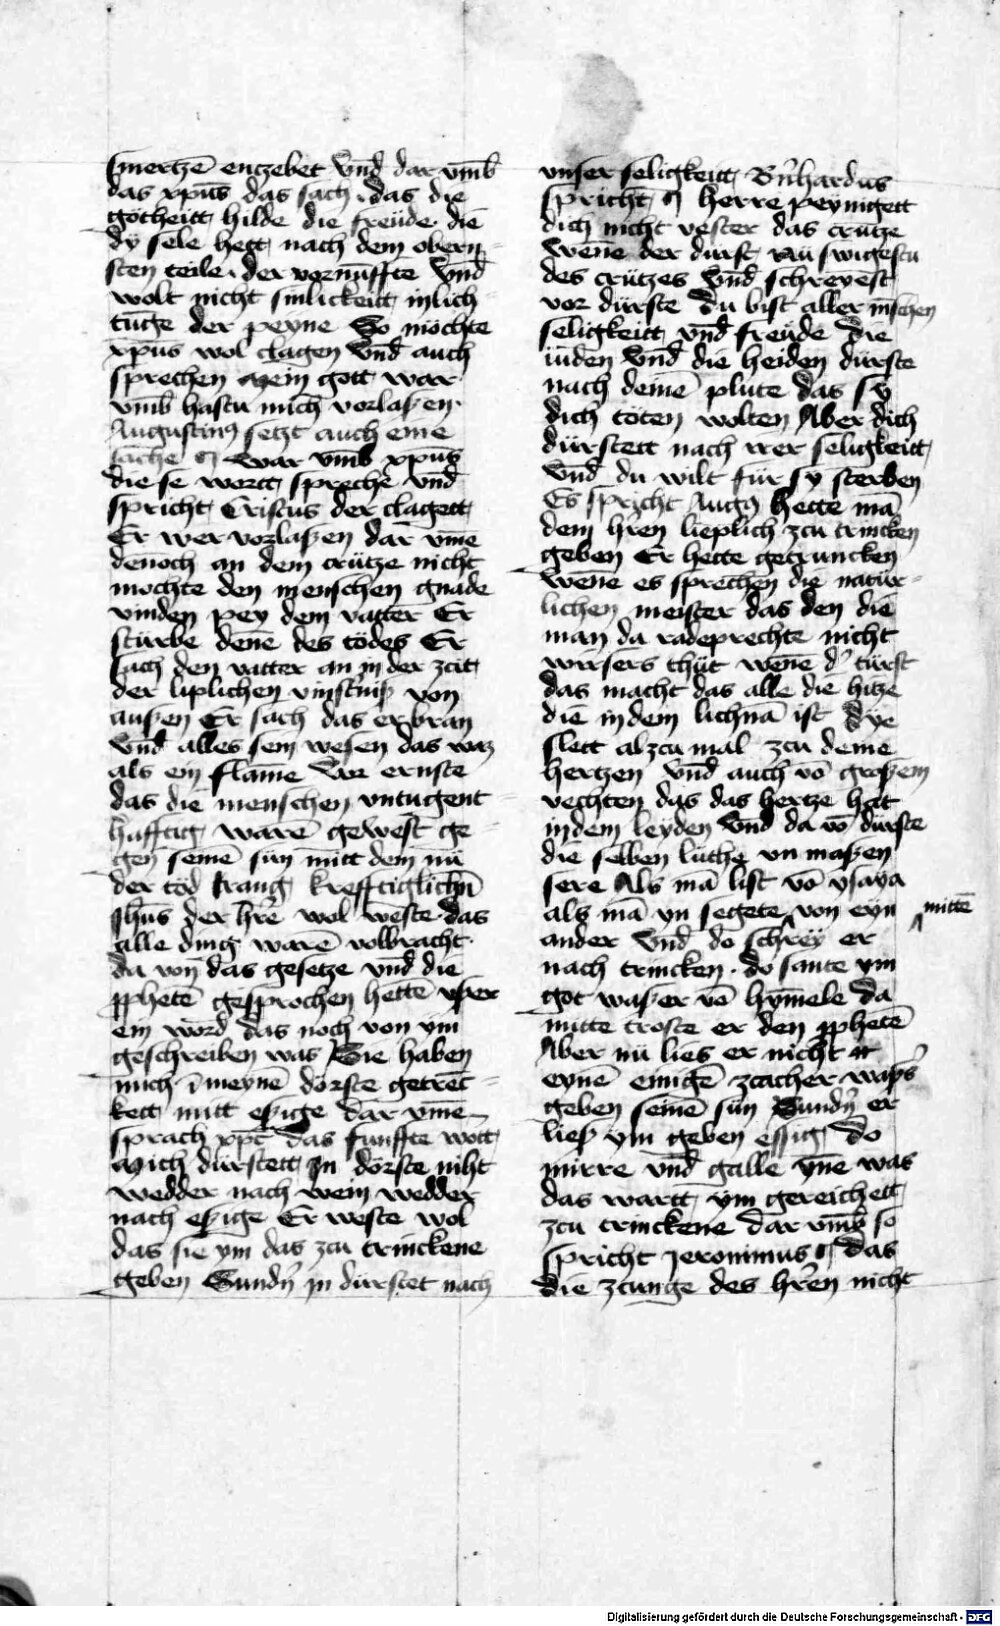 smertzē entzebet vnd dar vmb
das xpūs das sach das die
gotheitt hilde die freüde die
dy sele hett nach dem obern
sten teile der vornūfftē vnd
wolt nicht sinlickeitt inlich
tūge der peyne So mochte
xpūs wol clagen vnd auch
sprechen Mein gott war
vmb hastu mich vorlaßen
Augustinꝰ setzt auch eine
sache war vmb xpūs
diese wortt sprechē vnd
spricht Cristus der clagett
Er wer vorlaßen dar vmē
denoch an dem crütze nicht
mochte den menschen gnade
vinden pey dem vatter Er
stürbe denē des tödes Er
sach den vatter an in der zcit
der liplichen vinstniß von
außen Er sach das er bran
vnd alles sein wesen das waz
als ein flame vor ernste
das die menschen vntugent
hafftig warē gewest ge
gen seinē sün mitt dem nū
der töd krang krefftiglichn̄
Jhūs der hre wol weste das
alle ding warē volbracht
da von das gesetze vnd die
ꝓphetē gesprochen hette vßer
ein word das noch von ym
geschreiben was Sie haben
mich ī meynē dörste getren
kett mitt eßige dar vmē
sprach xpc das funffte wort
Mich dürstett In dörste niht
wedder nach wein wedder
nach eßige Er weste wol
das sie ym das zcu trinckene
geben Sundn̄ in dürstet nach
vnser seligkeitt Bn̄hardus
spricht O herre peynigett
dich nicht vester das crütze
wene der dürst nü swigestu
des crützes vnd schreyest
vor dürste du bist aller mschen
seligkeitt vnd freüde die
iüden vnd die heiden dürste
nach deinē plute das sy
dich töten wolten Aber dich
dürstett nach irer seligkeitt
vnd du wilt für sy sterben
Es spricht Augꝰ hette mā
dem hren lieplich zcu trincken
geben Er hette getruncken
wene es sprechen die natür
lichen meister das den die
man da radeprechte nicht
wirsers thüt wene d' türst
das macht das alle die hitze
die in dem lichnā ist dye
slett alzcumal zcu deme
hertzen vnd auch vō großem
vechten das das hertze hat
in dem leyden vnd da vō dürste
die selben lüthe vn maßen
sere Als mā list vō ysaya
als mā yn segete von eyn
mittē
ander vnd do schrey er
nach trincken do sante ym
got waßer vō hymele da
mitte troste er den ꝓphetē
Aber nü lies er nicht
eynē einigē zcacher waßs
geben seinē sün Sundn̄ er
ließ ym geben essig do
mirre vnd galle yne was
das wartt ym gereichett
zcu trinckene dar vmb so
spricht Jeronimus das
die zcunge des hren nicht
Digitalisierung gefördert durch die Deutsche Forschungsgemeinschaft - DFG